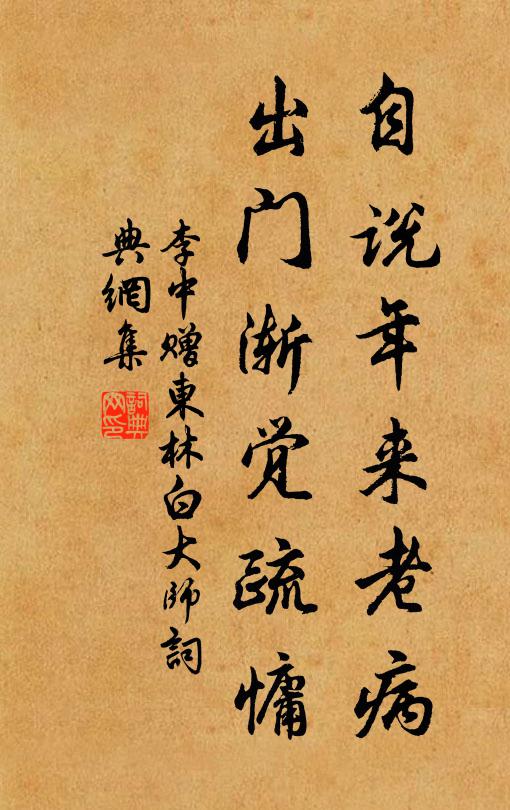 自说年来老病
出门渐觉疏慵
李中赠東林白大師詞
典網集
詞典
网印